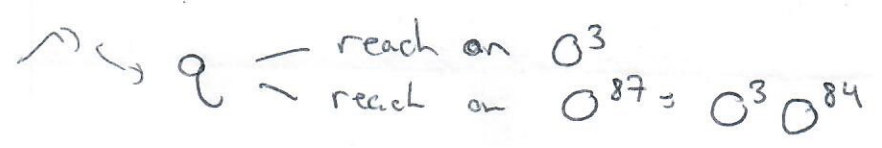 q reach on 0³
reach on 0⁸⁷ = 0³ 0⁸⁴